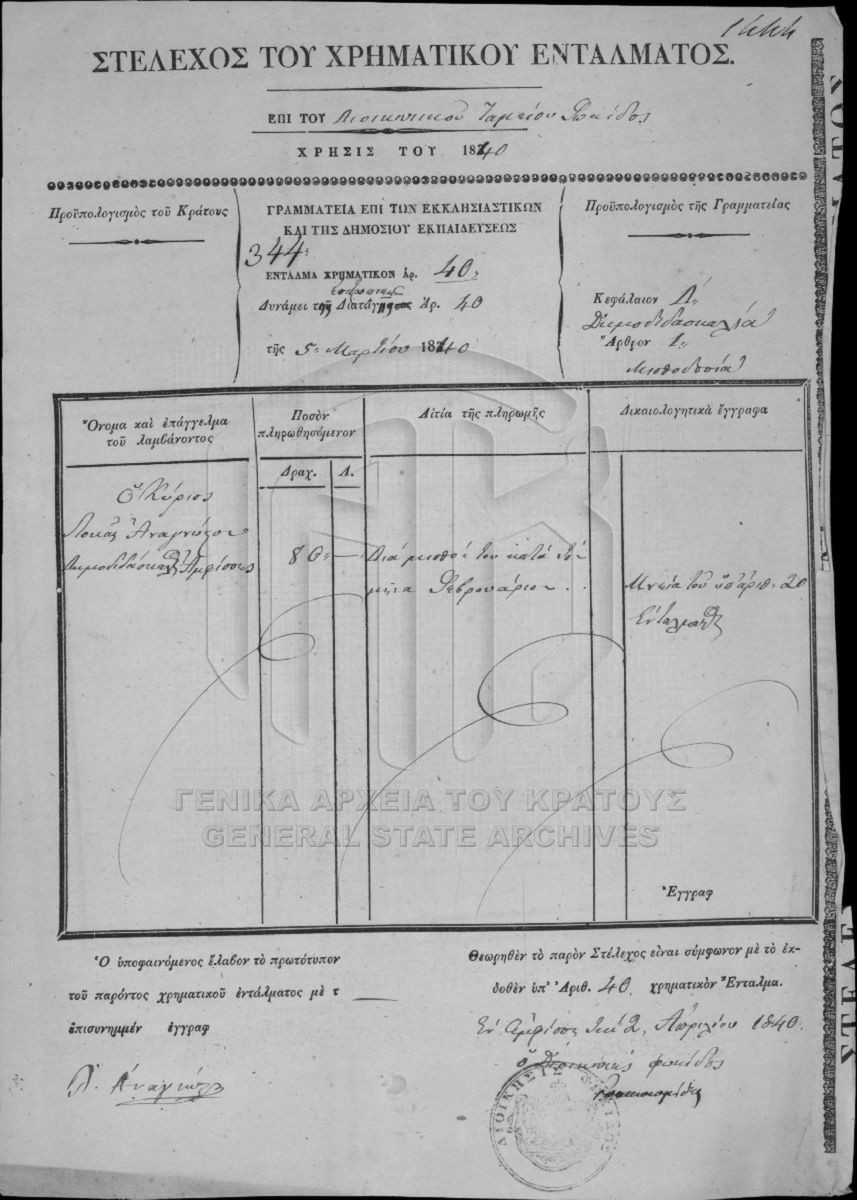 1444
ΣΤΕΛΕΧΟΣ ΤΟΥ ΧΡΗΜΑΤΙΚΟΥ ΕΝΤΑΛΜΑΤΟΣ.
ΕΠΙ ΤΟΥ Διοικητικοῦ Ταμείου Φωκίδος
ΧΡΗΣΙΣ ΤΟΥ 1840
Προϋπολογισμὸς τοῦ Κράτους
ΓΡΑΜΜΑΤΕΙΑ ΕΠΙ ΤΩΝ ΕΚΚΛΗΣΙΑΣΤΙΚΩΝ
ΚΑΙ ΤΗΣ ΔΗΜΟΣΙΟΥ ΕΚΠΑΙΔΕΥΣΕΩΣ
344
ΕΝΤΑΛΜΑ ΧΡΗΜΑΤΙΚΟΝ Ἀρ. 40
Δυνάμει τῆς Διαταγῆς Ἀρ. 40
τῆς 5 Μαρτίου 1840
Προϋπολογισμὸς τῆς Γραμματείας
Κεφάλαιον Δ
Δημοδιδασκαλία
Ἄρθρον 1
Μισθοδοσία
Ὄνομα καὶ ἐπάγγελμα
τοῦ λαμβάνοντος
Ποσὸν
πληρωθησόμενον
Αἰτία τῆς πληρωμῆς
Δικαιολογητικὰ ἔγγραφα
Δραχ. Λ.
Ὁ Κύριος
Λουκᾶς Ἀναγνώστου
Δημοδιδάσκαλος Ἀμφίσσης
80 —
Διὰ μισθόν του κατὰ τὸν
μῆνα Φεβρουάριον
Μνεία τοῦ ὑπ' ἀριθ. 20
Ἐντάλματος
Ἔγγραφ
ΓΕΝΙΚΑ ΑΡΧΕΙΑ ΤΟΥ ΚΡΑΤΟΥΣ
GENERAL STATE ARCHIVES
Ὁ ὑποφαινόμενος ἔλαβον τὸ πρωτότυπον
τοῦ παρόντος χρηματικοῦ ἐντάλματος μὲ τ
ἐπισυνημμέν ἐγγραφ
Λ. Ἀναγνώστου
Θεωρηθὲν τὸ παρὸν Στέλεχος εἶναι σύμφωνον μὲ τὸ ἐκ-
δοθὲν ὑπ' Ἀριθ. 40 χρηματικὸν Ἔνταλμα.
Ἐν Ἀμφίσσῃ τὴν 2 Ἀπριλίου 1840.
ὁ Διοικητὴς Φωκίδος
ΔΙΟΙΚΗΣΙΣ ΦΩΚΙΔΟΣ
ΣΤΕΛΕ
ΜΑΤΟΣ